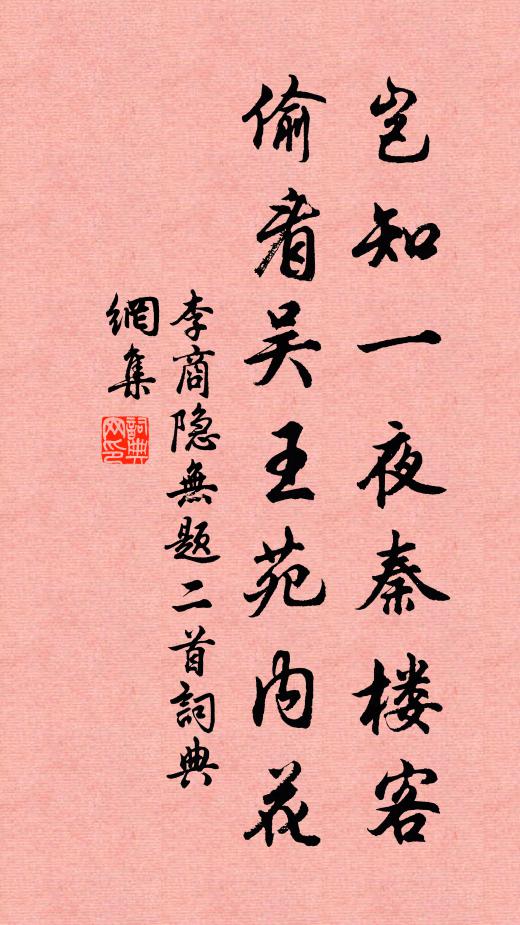 岂知一夜秦楼客
偷看吴王苑内花
李商隐無题二首詞典
網集
詞典网印